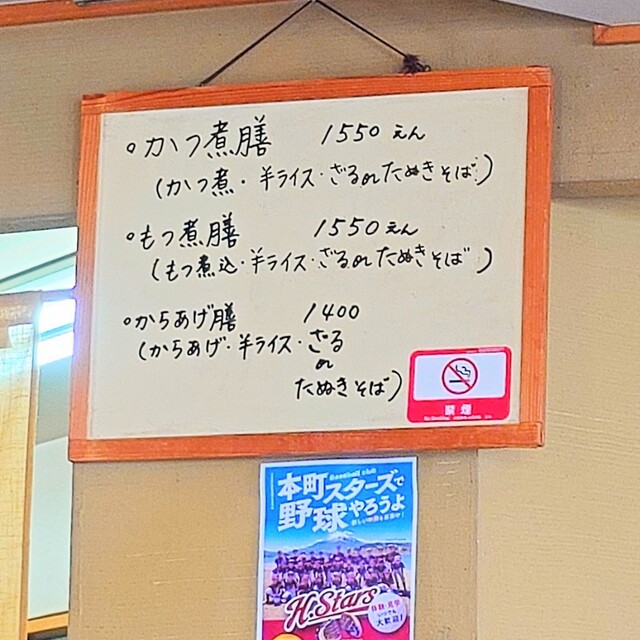 かつ煮膳 1550えん
(かつ煮・半ライス・ざるorたぬきそば)
もつ煮膳 1550えん
(もつ煮込・半ライス・ざるorたぬきそば)
からあげ膳 1400
(からあげ・半ライス・ざる
or
たぬきそば)
禁煙
Baseball club
本町スターズで
野球やろうよ
H.Stars
体験・見学
いつでも
大歓迎!